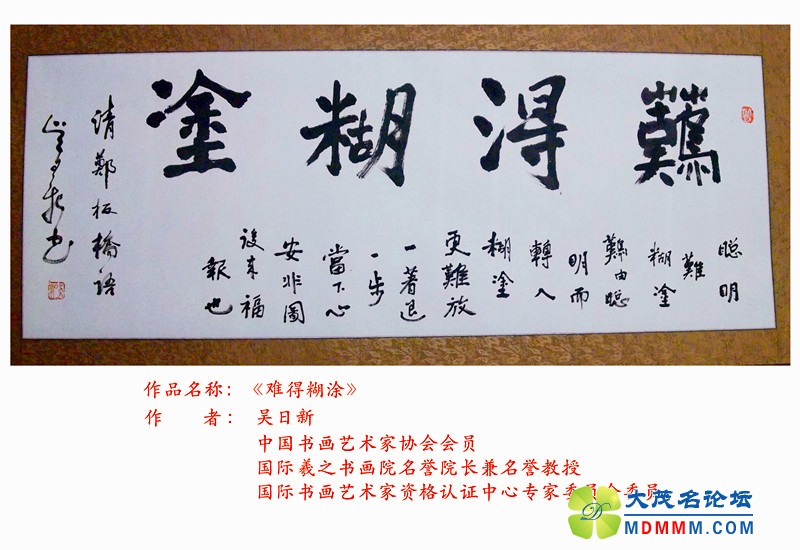 難得糊塗
聰明
難
糊塗
難由聰
明而
轉入
糊塗
更難放
一著退
一步
當下心
安非圖
後来福
報也
清鄭板橋語
作品名称：《难得糊涂》
作　　者：吴日新
中国书画艺术家协会会员
国际羲之书画院名誉院长兼名誉教授
国际书画艺术家资格认证中心专家委员会委员
大茂名论坛
MDMMM.COM